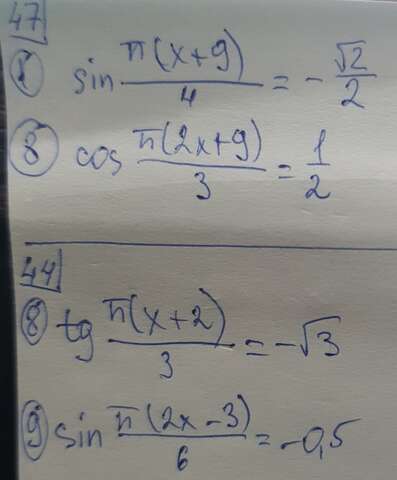 47
① sin π(x+9)/4 = -√2/2
⑧ cos π(2x+9)/3 = 1/2
44
⑧ tg π(x+2)/3 = -√3
⑨ sin π(2x-3)/6 = -0,5